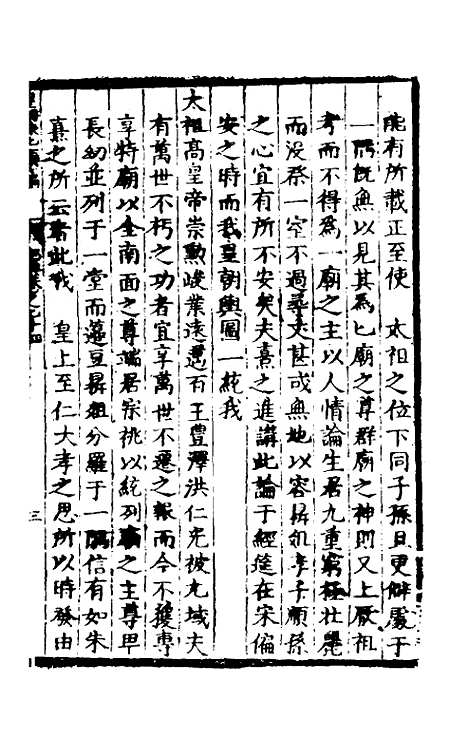 能有所載正至使 太祖之位下同子孫且更僻處于
一隅既無以見其為七廟之尊群廟之神則又上厭祖
考而不得為一廟之主以人情論生居九重窮極壯麗
而沒祭一室不過尋丈甚或無地以容 孝子順孫
之心宜有所不安矣夫熹之進講此論于經筵在宋偏
安之時而我皇朝輿圖一統我
太祖高皇帝崇勳峻業遠邁百王豊澤洪仁充被九域夫
有萬世不朽之功者宜享萬世不遷之報而今不獲專
享特廟以全南面之尊端居宗祧以統列廟之主尊甲
長幼並列于一堂而籩豆 俎分羅于一隅信有如朱
熹之所云者此我 皇上至仁大孝之思所以時發由
三